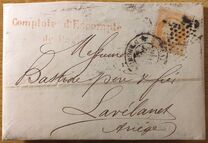 Comptoir d'Escompte
de
Messieurs
Bastide père & fils
Lavelanet
Ariège